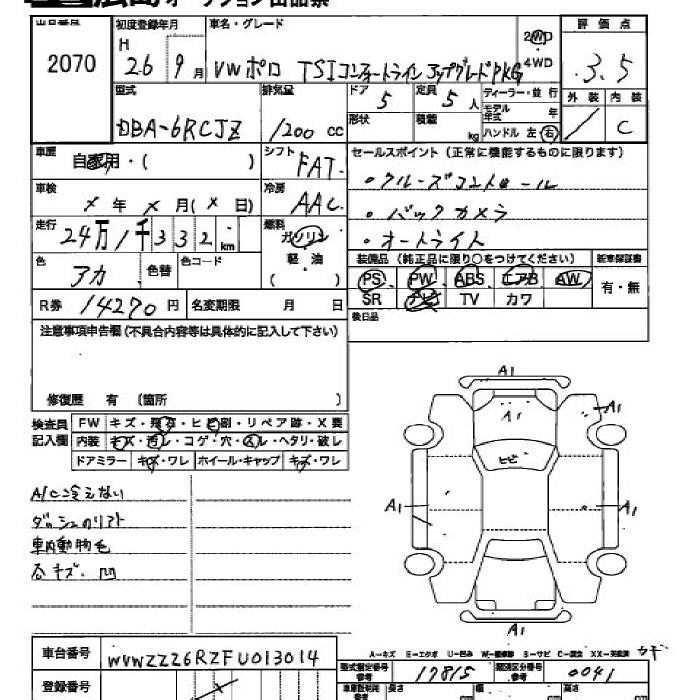 広島オークション出品票
出品番号 初度登録年月 車名・グレード 評価点
2070 H 26 9月 VWポロ TSIコンフォートラインアップグレードPKG 2WD 4WD 3.5
型式 排気量 ドア 定員 ディーラー・並行 外装 内装
DBA-6RCJZ 1200cc 5 5人 モデル年式 年 C
形状 積載 kg ハンドル 左・右
車歴 自家用・( ) シフト FAT セールスポイント(正常に機能するものに限ります)
車検 ×年×月(×日) 冷房 AAC ・クルーズコントロール
・バックカメラ
走行 24万1千332km 燃料 ガソリン ・オートライト
色 アカ 色替 色コード 軽・油 ( ) 装備品(純正品に限り○をつけてください) 新車保証書
PS PW ABS エアB AW 有・無
R券 14270円 名変期限 月 日 SR ナビ TV カワ
注意事項申告欄(不具合内容等は具体的に記入して下さい) 後日品
修復歴 有 (箇所 )
検査員記入欄 FW キズ・飛石・ヒビ割・リペア跡・X要
内装 キズ・汚レ・コゲ・穴・スレ・ヘタリ・破レ
ドアミラー キズ・ワレ ホイール・キャップ キズ・ワレ
A1
A1
A1
ヒビ
A1
A1
A1
A/C冷えない
ダッシュのリフト
車内動物毛
各キズ.凹
A-キズ E-エクボ U-凹み W-補修跡 S-サビ C-腐食 XX-交換済
車台番号 WVWZZZ6RZFU013014
型式指定番号 参考 17815 類別区分番号 参考 0041
登録番号 車庫証明用 参考 長さ cm 幅 cm 高さ cm